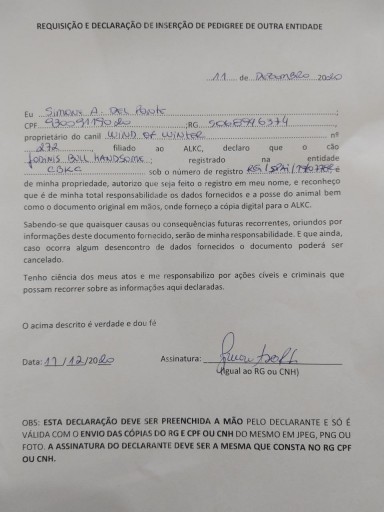 REQUISIÇÃO E DECLARAÇÃO DE INSERÇÃO DE PEDIGREE DE OUTRA ENTIDADE
11 de DEZEMBRO 2020
Eu SIMONE A. DAL PONTE;
CPF ;RG
proprietário do canil WIND OF WINTER nº
272, filiado ao ALKC, declaro que o cão
BULL HANDSOME; registrado na entidade
CBKC sob o número de registro
de minha propriedade, autorizo que seja feito o registro em meu nome, e reconheço
que é de minha total responsabilidade os dados fornecidos e a posse do animal bem
como o documento original em mãos, onde forneço a cópia digital para o ALKC.
Sabendo-se que quaisquer causas ou consequências futuras recorrentes, oriundos por
informações deste documento fornecido, serão de minha responsabilidade. E que ainda,
caso ocorra algum desencontro de dados fornecidos o documento poderá ser
cancelado.
Tenho ciência dos meus atos e me responsabilizo por ações cíveis e criminais que
possam recorrer sobre as informações aqui declaradas.
O acima descrito é verdade e dou fé
Data: 11/12/2020 Assinatura:
(Igual ao RG ou CNH)
OBS: ESTA DECLARAÇÃO DEVE SER PREENCHIDA A MÃO PELO DECLARANTE E SÓ É
VÁLIDA COM O ENVIO DAS CÓPIAS DO RG E CPF OU CNH DO MESMO EM JPEG, PNG OU
FOTO. A ASSINATURA DO DECLARANTE DEVE SER A MESMA QUE CONSTA NO RG CPF
OU CNH.